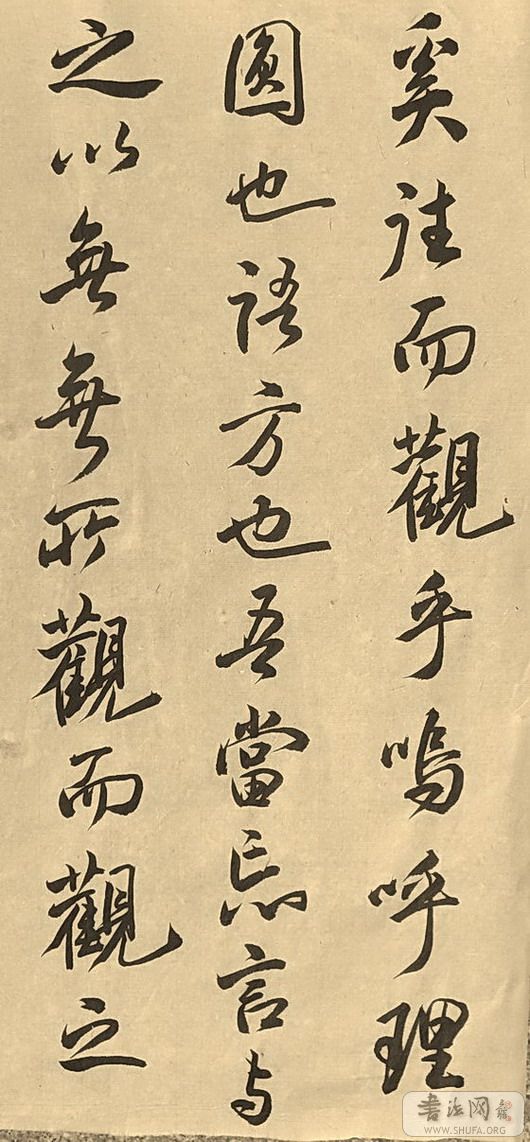 奚往而觀乎嗚呼理
圓也語方也吾當忘言与
之以無無所觀而觀之
書法网
WWW.SHUFA.ORG